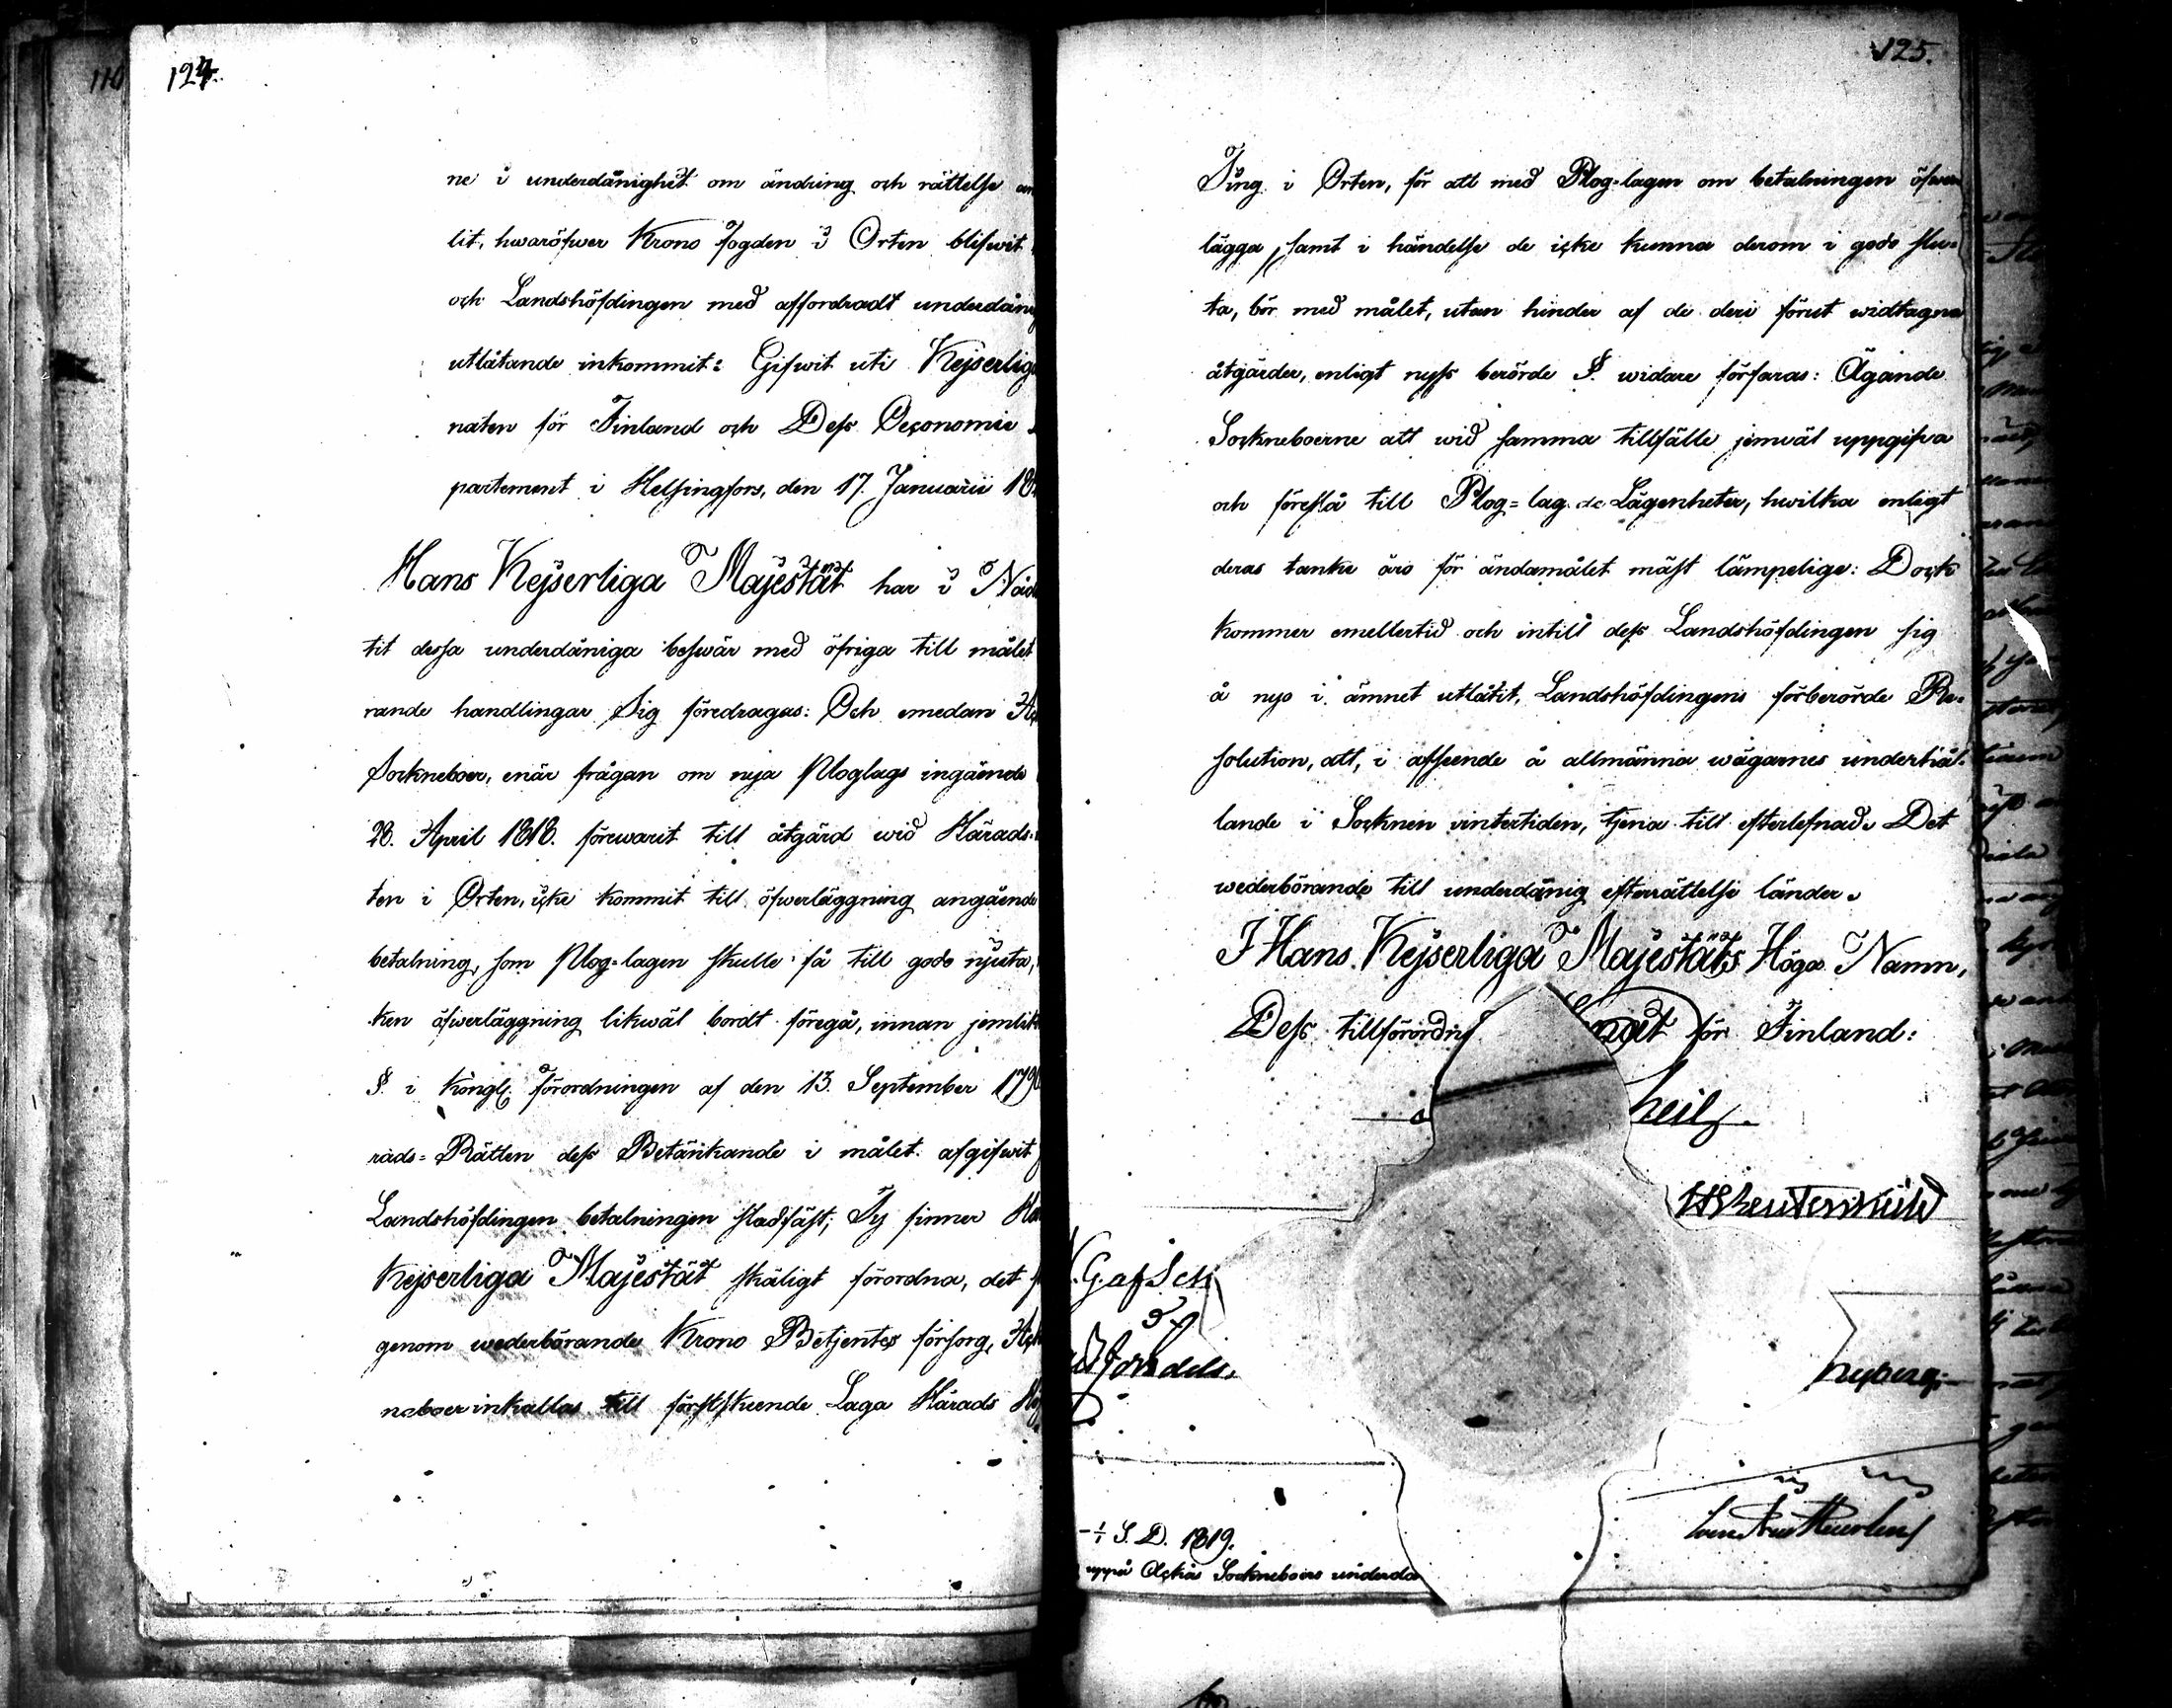 110
124.
ne i underdånighet om ändring och rättelse
lit, hwaröfwer Krono Fogden i Orten blifwit
och Landshöfdingen med affordradt underdån
utlåtande inkommit: Gifwit uti Kejserlig
naten för Finland och Dess Oeconomie
partement i Helsingfors, den 17. Januarii 18
Hans Kejserliga Majestät har i Nåd
tit dessa underdåniga beswär med öfriga till målet
rande handlingar Sig föredragas: Och emedan
Sockneboer, enär frågan om nya Ploglags ingående
28. April 1818. förewarit till åtgärd wid Härads-
ten i Orten, icke kommit till öfwerläggning angående
betalning, som Plog-lagen skulle få till godo njuta,
ken öfwerläggning likwäl bordt föregå, innan jemlik
§. i Kongl. Förordningen af den 13. September 179
rads-Rätten dess Betänkande i målet afgifwit
Landshöfdingen betalningen stadfäst; Ty finner
Kejserliga Majestät skäligt förordna, det
genom wederbörande Krono Betjentes försorg,
neboer inkallas till förstskeende Laga Härads
125.
Ting i Orten, för att med Plog-lagen om betalningen öfwer
lägga, samt i händelse de icke kunna derom i godo slu-
ta, bör med målet, utan hinder af de deri förut widtagna
åtgärder, enligt nyss berörde §. widare förfaras: Ägande
Sockneboerne att wid samma tillfälle jemwäl uppgifva
och föreslå till Plog-lag de Lägenheter, hwilka enligt
deras tanke äro för ändamålet mäst lämpelige: Dock
kommer emellertid och intill dess Landshöfdingen sig
å nyo i ämnet utlåtit, Landshöfdingens förberörde Re-
solution, att, i afseende å allmänna wägarnes underhål-
lande i Socknen vintertiden, tjena till efterlefnad. Det
wederbörande till underdånig efterrättelse länder.
I Hans Kejserliga Majestäts Höga Namn,
Dess tillförordn nat för Finland:
G. af Sch
nyberg
S. D. 1819.
uppå Sockneboers underdå